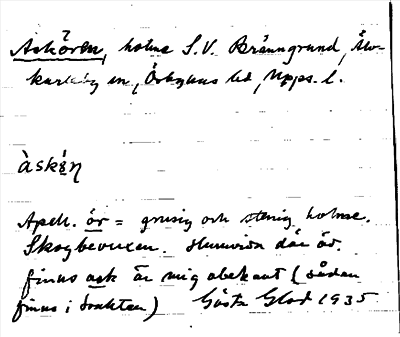 Asköven, holme S.V. Bränngrund, Älv-
karleby sn, Örbyhus hd, Upps. l.
àskén
Apell. ör = grusig och stenig holme.
Skogbevuxen. Huruvida där är.
finns ask är mig obekant (sådan
finns i trakten) Gösta Glad 1935